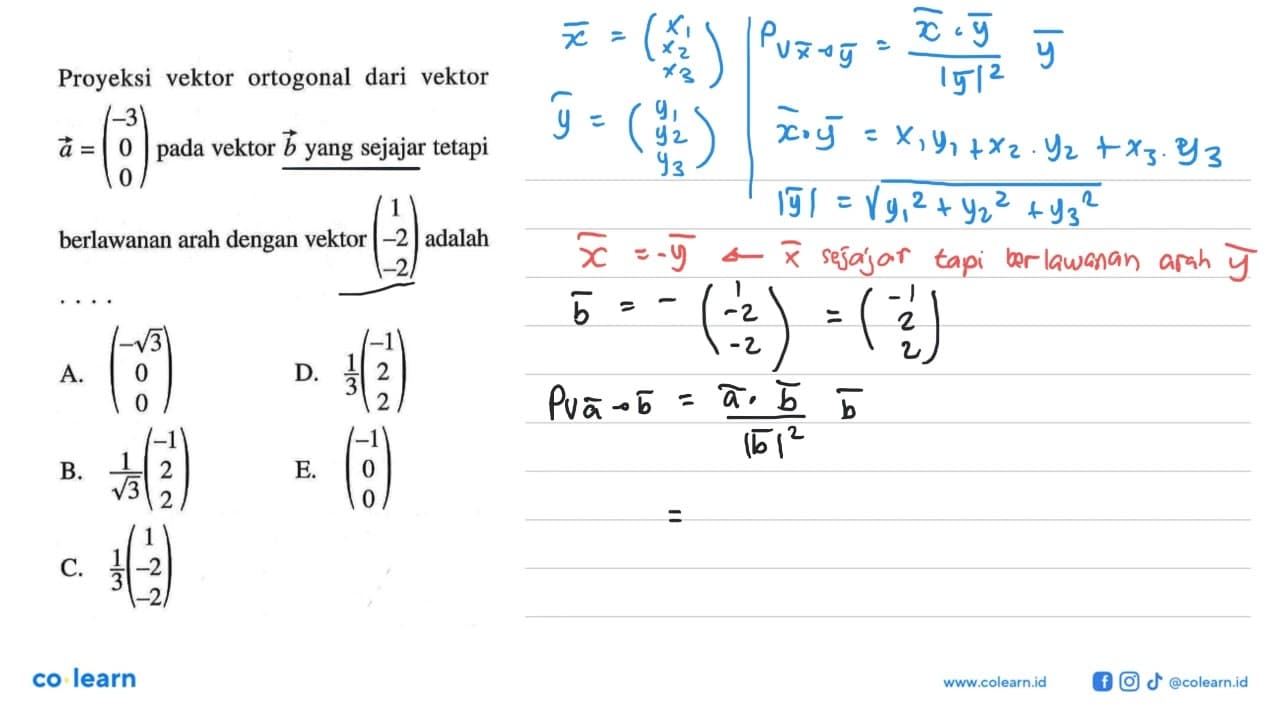 Proyeksi vektor ortogonal dari vektor
a⃗ = (-3 0 0) pada vektor b⃗ yang sejajar tetapi
berlawanan arah dengan vektor (1 -2 -2) adalah
. . . .
A. (-√3 0 0)
B. 1/√3 (-1 2 2)
C. 1/3 (1 -2 -2)
D. 1/3 (-1 2 2)
E. (-1 0 0)
x̄ = (x₁ x₂ x₃)
ȳ = (y₁ y₂ y₃)
PV x̄→ȳ = x̄ . ȳ / |ȳ|² ȳ
x̄ . ȳ = x₁y₁ + x₂ . y₂ + x₃ . y₃
|ȳ| = √y₁² + y₂² + y₃²
x̄ = -ȳ ← x̄ sejajar tapi berlawanan arah ȳ
b̄ = - (1 -2 -2) = (-1 2 2)
PV ā→b̄ = ā . b̄ / |b̄|² b̄
=
co learn
www.colearn.id
@colearn.id